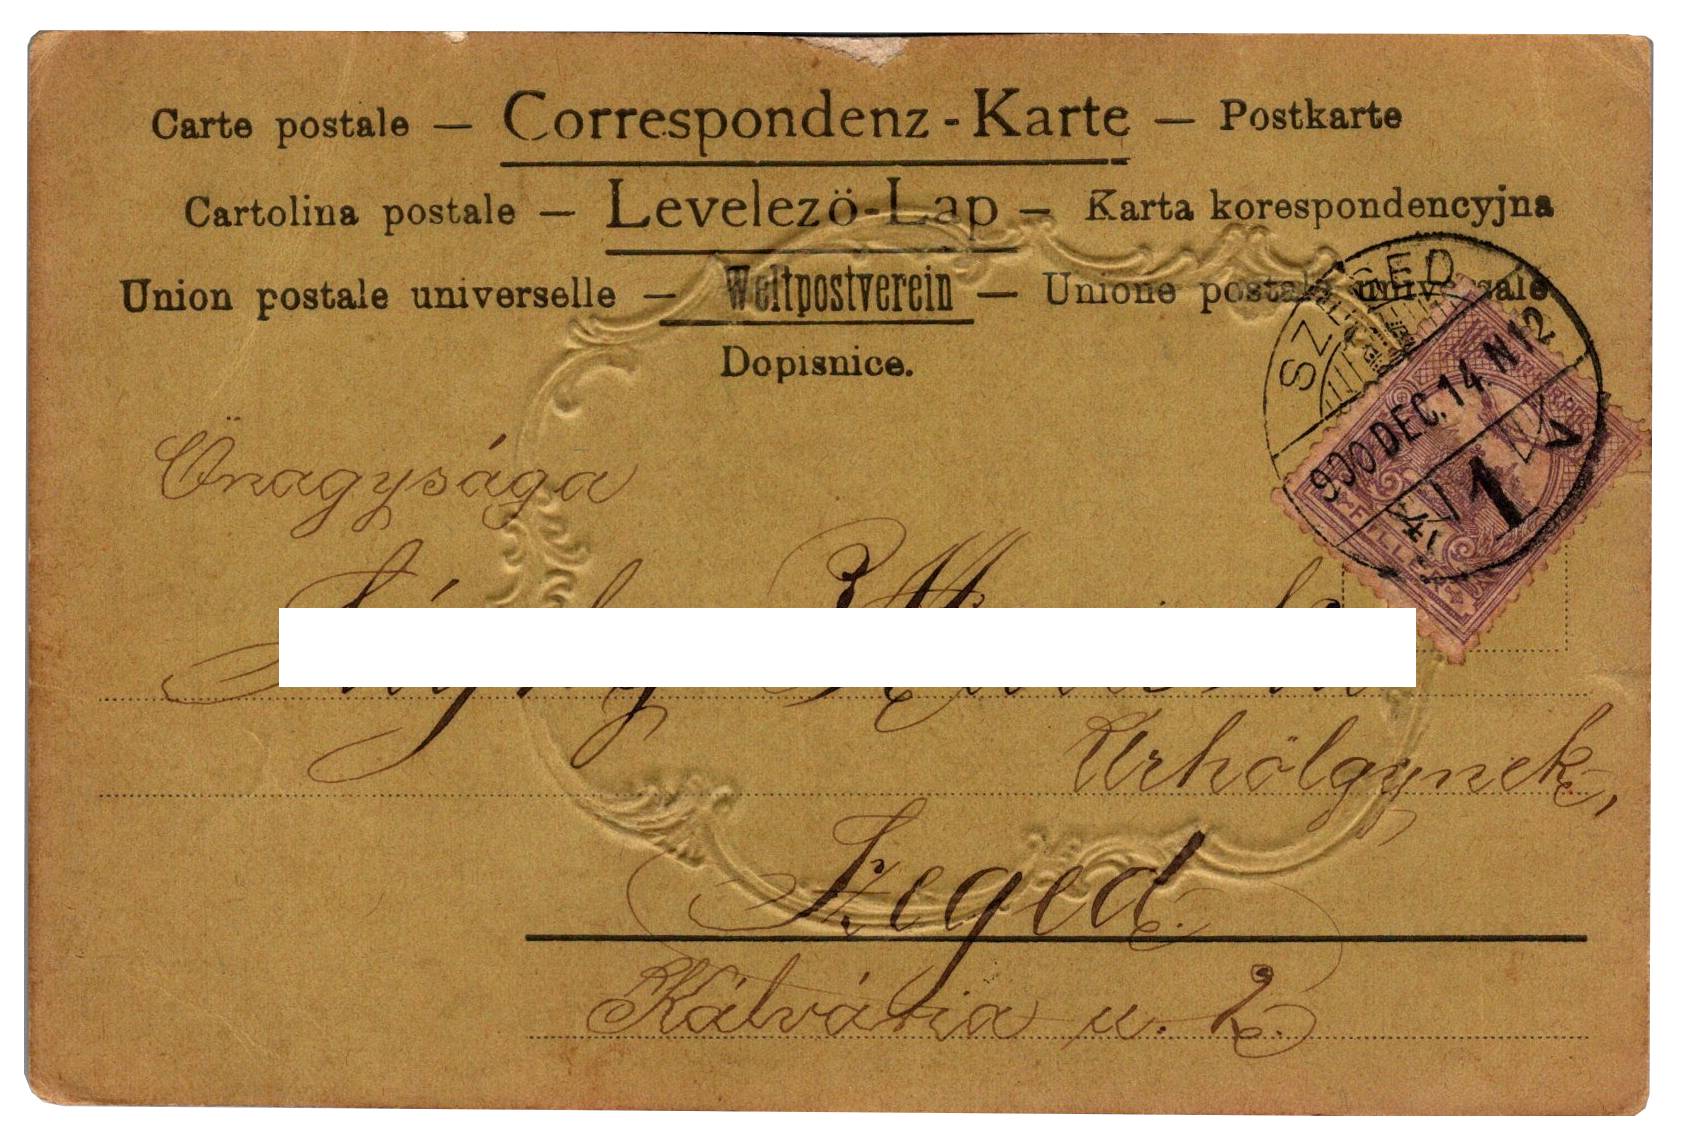 Carte postale — Correspondenz-Karte — Postkarte
Cartolina postale — Levelezö-Lap — Karta korespondencyjna
Union postale universelle — Weltpostverein — Unione postale universale
Dopisnice.
SZEGED
900 DEC. 14. N 12
1
FILLÉR
Önagysága
Urhölgynek,
Szeged.
Kálvária u. 2.